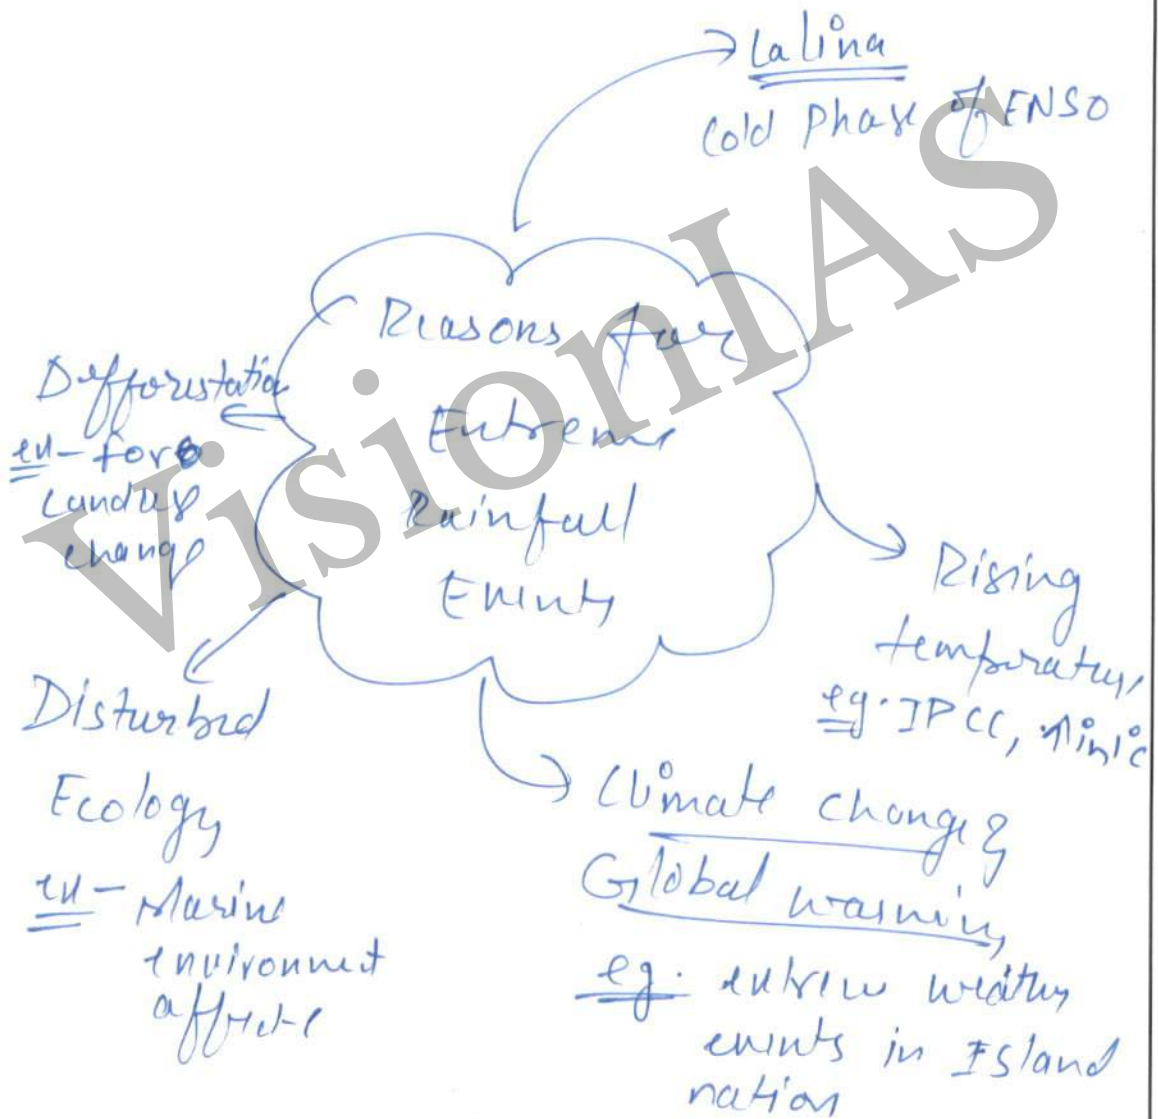 Lalina
cold phase of ENSO
Reasons for
Extreme
Rainfall
Events
Defforestation
ex- for
landuse
change
Disturbed
Ecology
ex- Marine
environment
affected
Rising
temperature,
eg. IPCC,
Climate change &
Global warming
eg. extreme weather
events in Island
nation
VisionIAS